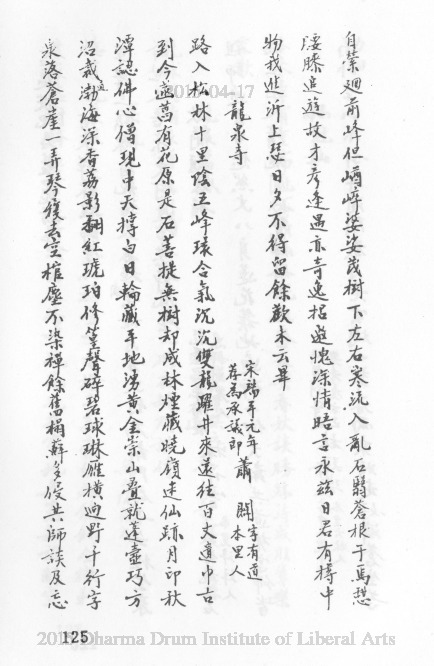 自縈廻前峰但嶒崪婆娑茂樹下左右寒流入亂石翳蒼根于焉憇
腰膝追遊故才彥逢遇亦奇逸招遊愧深情晤言永茲日君有摶中
物我進沂上瑟日夕不得留餘歡未云畢
龍泉寺
宋端平元年
荐為承議郎 蕭 闢 字有道
本里人
路入松林十里陰五峰環合氣沉沉雙龍躍井來還往百丈遺巾古
到今窓蔔有花原是石菩提無樹却成林煙臧曉嶺迷仙跡月印秋
潭認佛心僧現中天摶白日輪藏平地湧黃金崇山疊就蓬壺巧方
沼裁渤海深香荔影翻紅琥珀修篁聲碎碧球琳雁橫逈野千行字
泉落蒼崖一弄琴履去空棺塵不染禪餘舊榻蘚多侵共師談及忘
2015-04-17
125
2015 Dharma Drum Institute of Liberal Arts